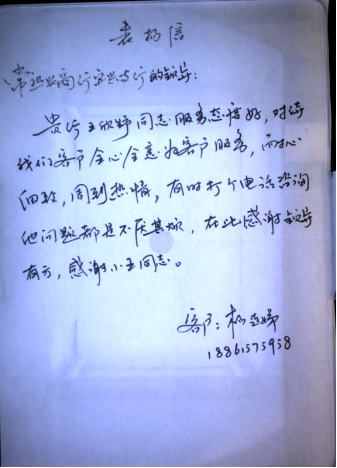 表扬信
常熟农商行宜兴支行的领导:
贵行王欣婷同志服务态度好,对待
我们客户全心全意为客户服务,而耐心
细致,周到热情,有时打个电话咨询
他问题都是不厌其烦,在此感谢领导
有方,感谢小王同志。
客户:杨
18861575958